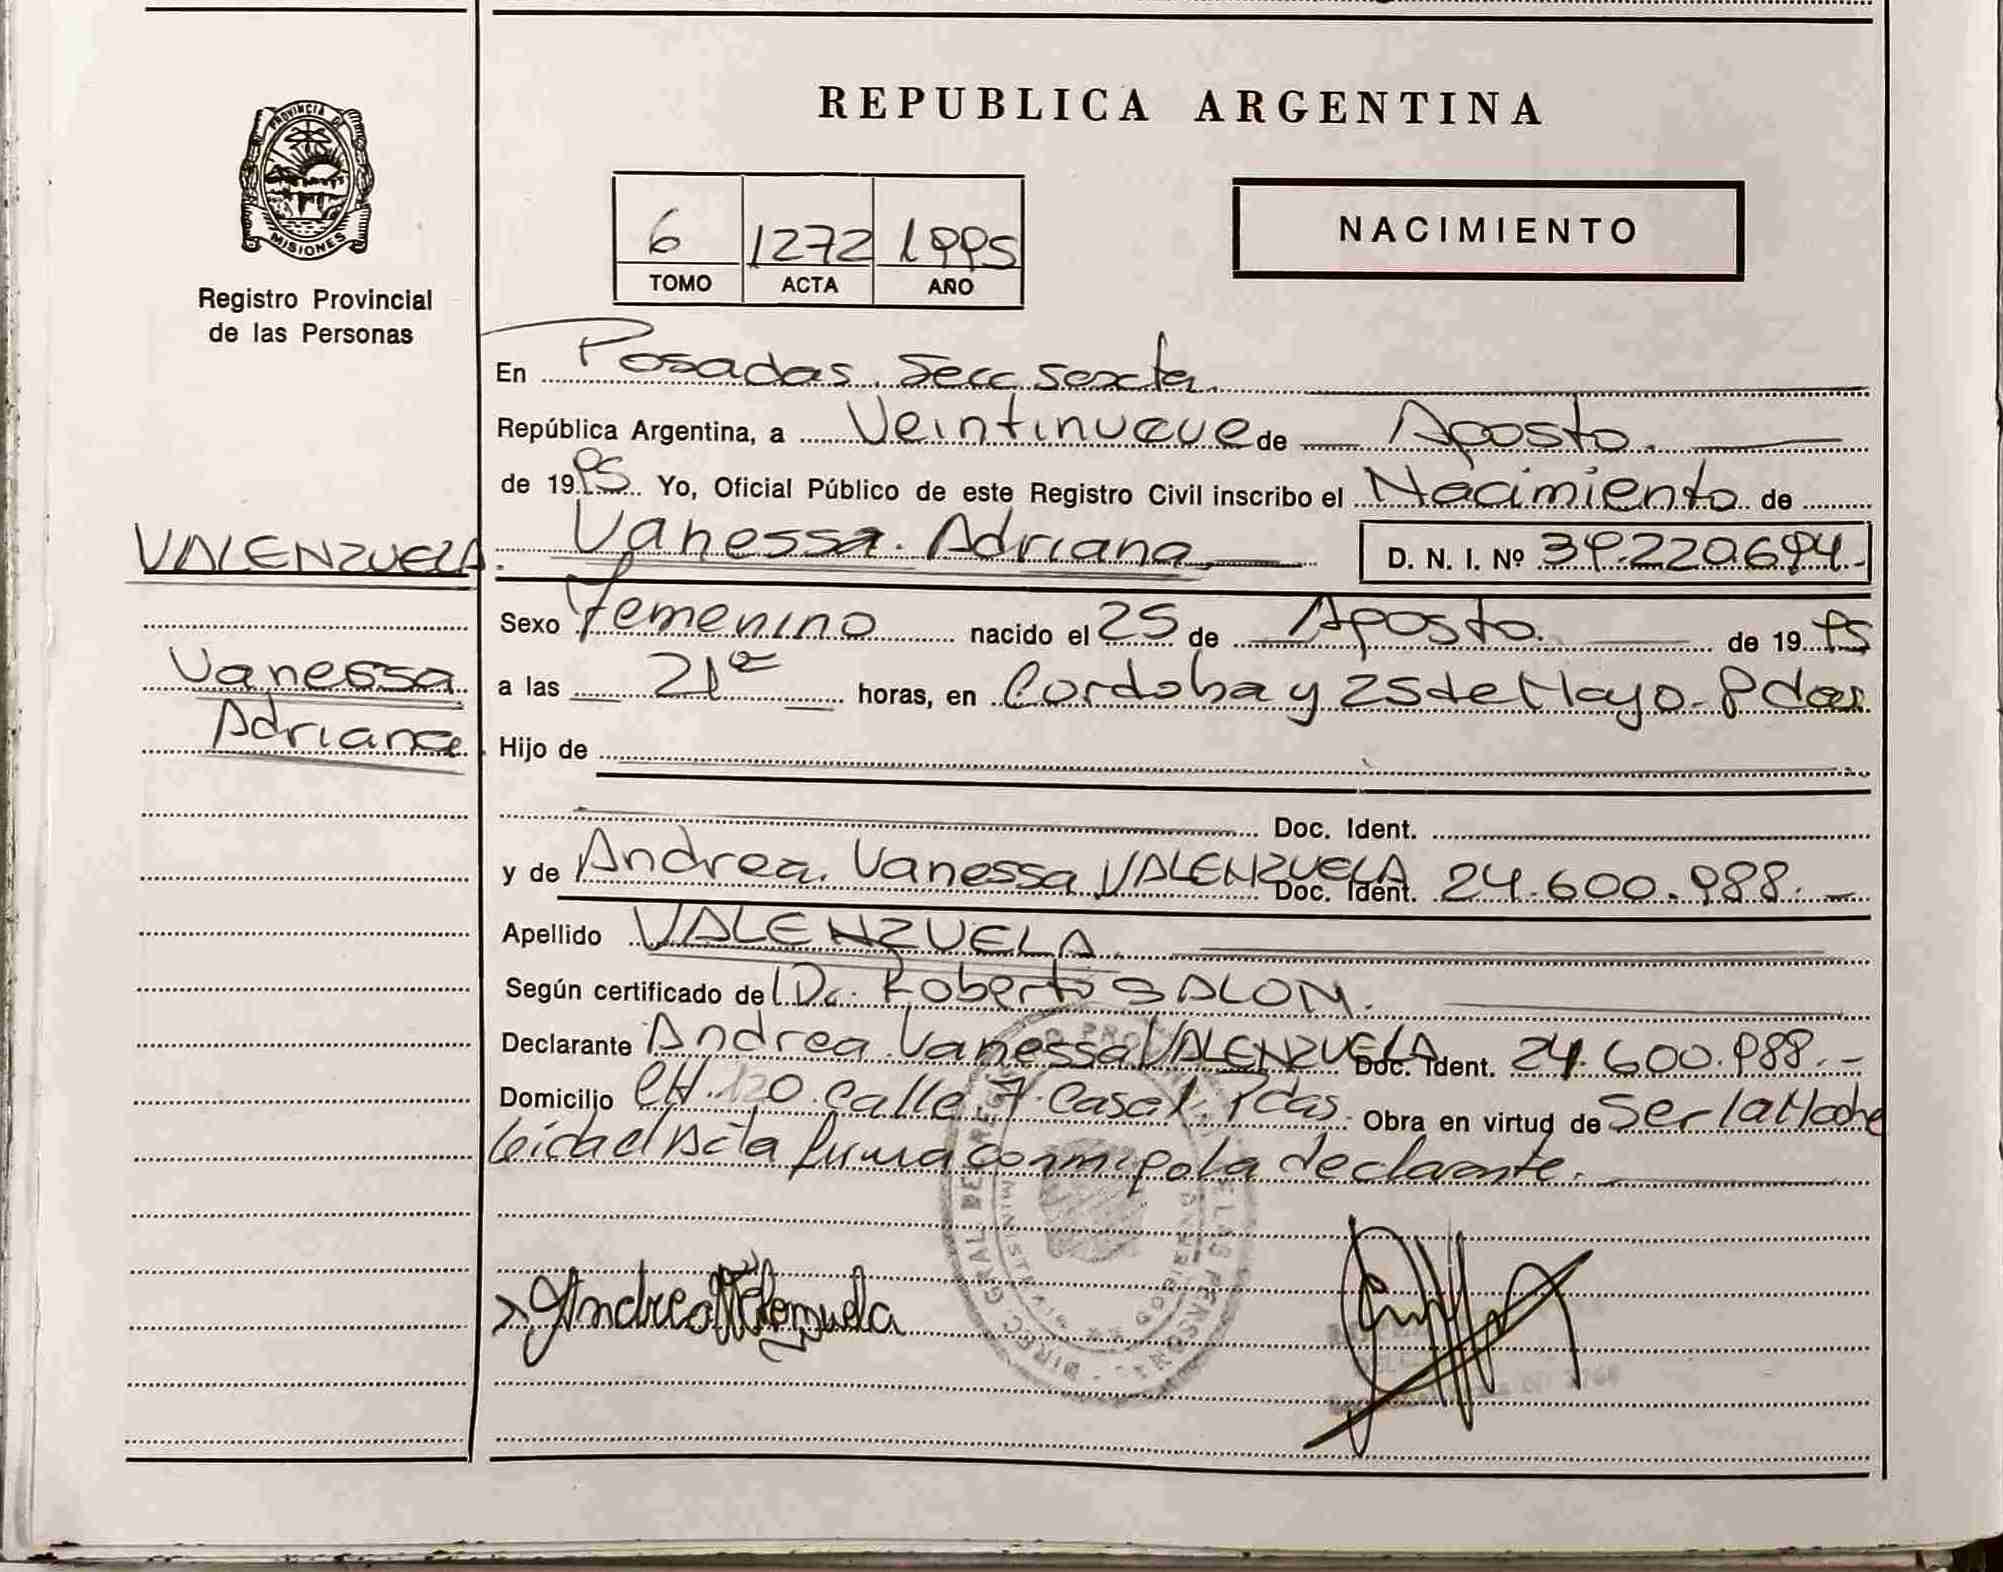 REPUBLICA ARGENTINA
PROVINCIA DE
MISIONES
Registro Provincial
de las Personas
6 1272 1995
TOMO ACTA AÑO
NACIMIENTO
En Posadas. Secc sexta.
República Argentina, a Veintinueve de Agosto.
de 1995 Yo, Oficial Público de este Registro Civil inscribo el Nacimiento de
VALENZUELA. Vanessa. Adriana D. N. I. Nº 39.220.694.-
Sexo Femenino nacido el 25 de Agosto. de 1995
Vanessa a las 21 horas, en Cordoba y 25 de Mayo. Pdas
Adriana Hijo de
Doc. Ident.
y de Andrea. Vanessa VALENZUELA Doc. Ident. 24.600.988.-
Apellido VALENZUELA.
Según certificado de Dr. Roberto SALOM.
Declarante Andrea Vanessa VALENZUELA Doc. Ident. 24.600.988.-
Domicilio CH. 120 Calle 7 Casa 1. Pdas. Obra en virtud de Ser la Madre
leida el Acta firma conmigo la declarante.
Andrea Valenzuela